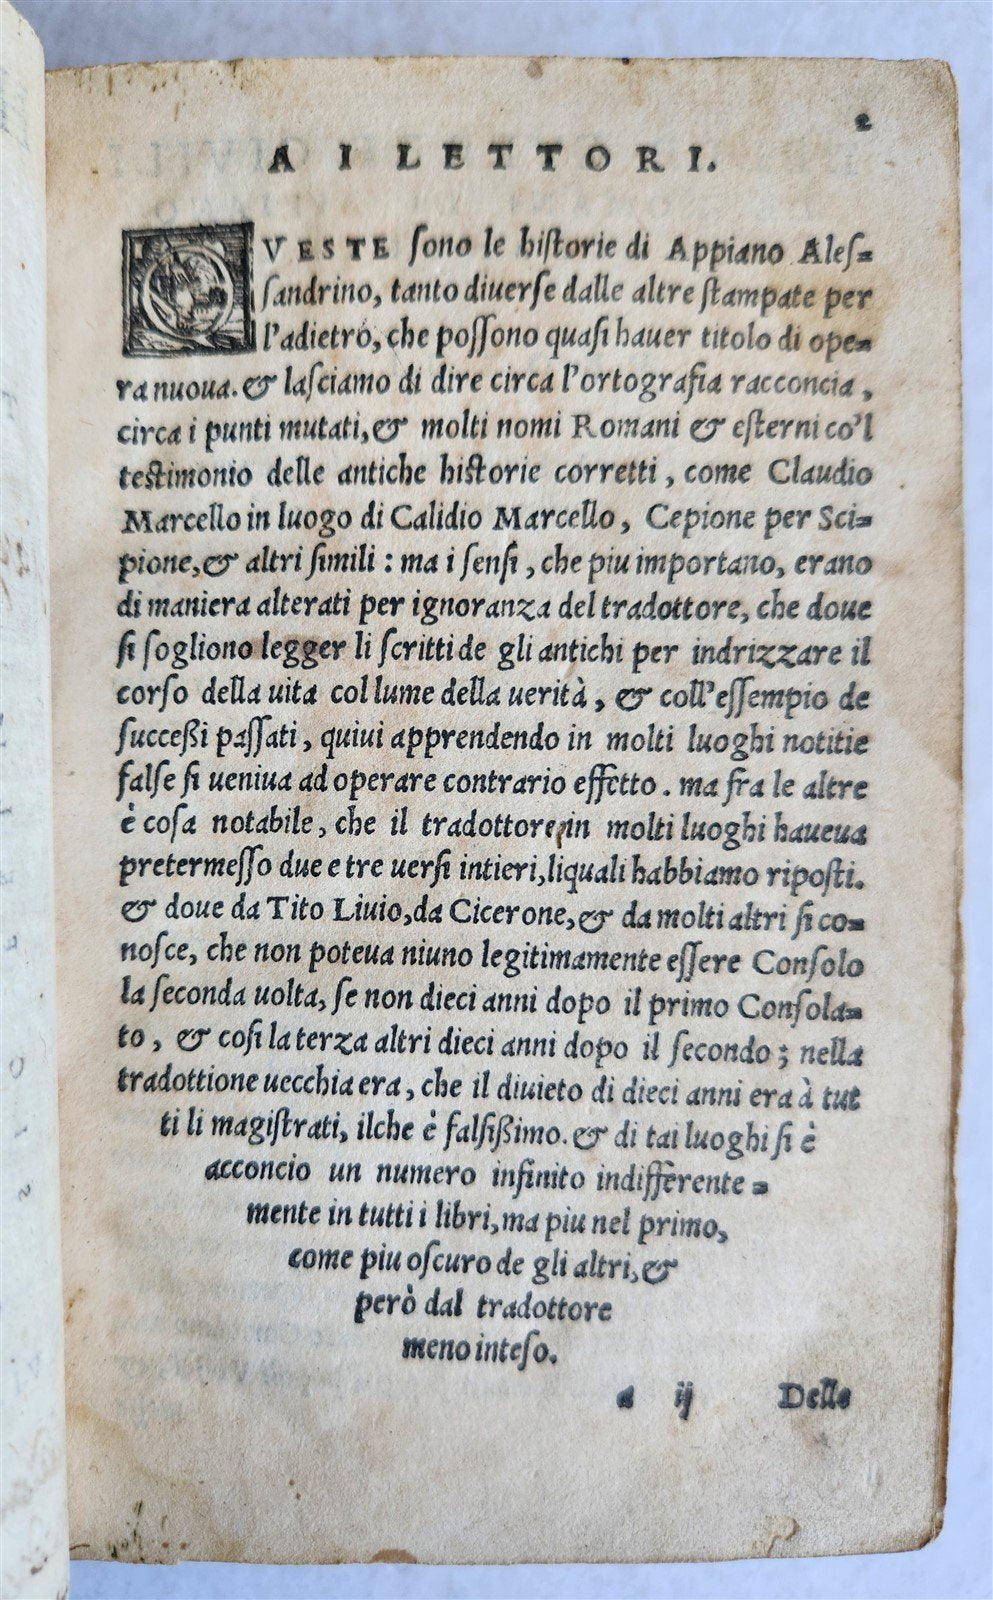 2
A I LETTORI.
QVESTE sono le historie di Appiano Ales=
sandrino, tanto diuerse dalle altre stampate per
l'adietro, che possono quasi hauer titolo di ope=
ra nuoua. & lasciamo di dire circa l'ortografia racconcia,
circa i punti mutati, & molti nomi Romani & esterni co'l
testimonio delle antiche historie corretti, come Claudio
Marcello in luogo di Calidio Marcello, Cepione per Sci=
pione, & altri simili : ma i sensi, che piu importano, erano
di maniera alterati per ignoranza del tradottore, che doue
si sogliono legger li scritti de gli antichi per indrizzare il
corso della uita col lume della uerità, & coll'essempio de
successi passati, quiui apprendendo in molti luoghi notitie
false si ueniua ad operare contrario effetto. ma fra le altre
è cosa notabile, che il tradottore in molti luoghi haueua
pretermesso due e tre uersi intieri, liquali habbiamo riposti.
& doue da Tito Liuio, da Cicerone, & da molti altri si co=
nosce, che non poteua niuno legitimamente essere Consolo
la seconda uolta, se non dieci anni dopo il primo Consola=
to, & cosi la terza altri dieci anni dopo il secondo; nella
tradottione uecchia era, che il diuieto di dieci anni era à tut
ti li magistrati, ilche è falsissimo. & di tai luoghi si è
acconcio un numero infinito indifferente=
mente in tutti i libri, ma piu nel primo,
come piu oscuro de gli altri, &
però dal tradottore
meno inteso.
a ij Delle